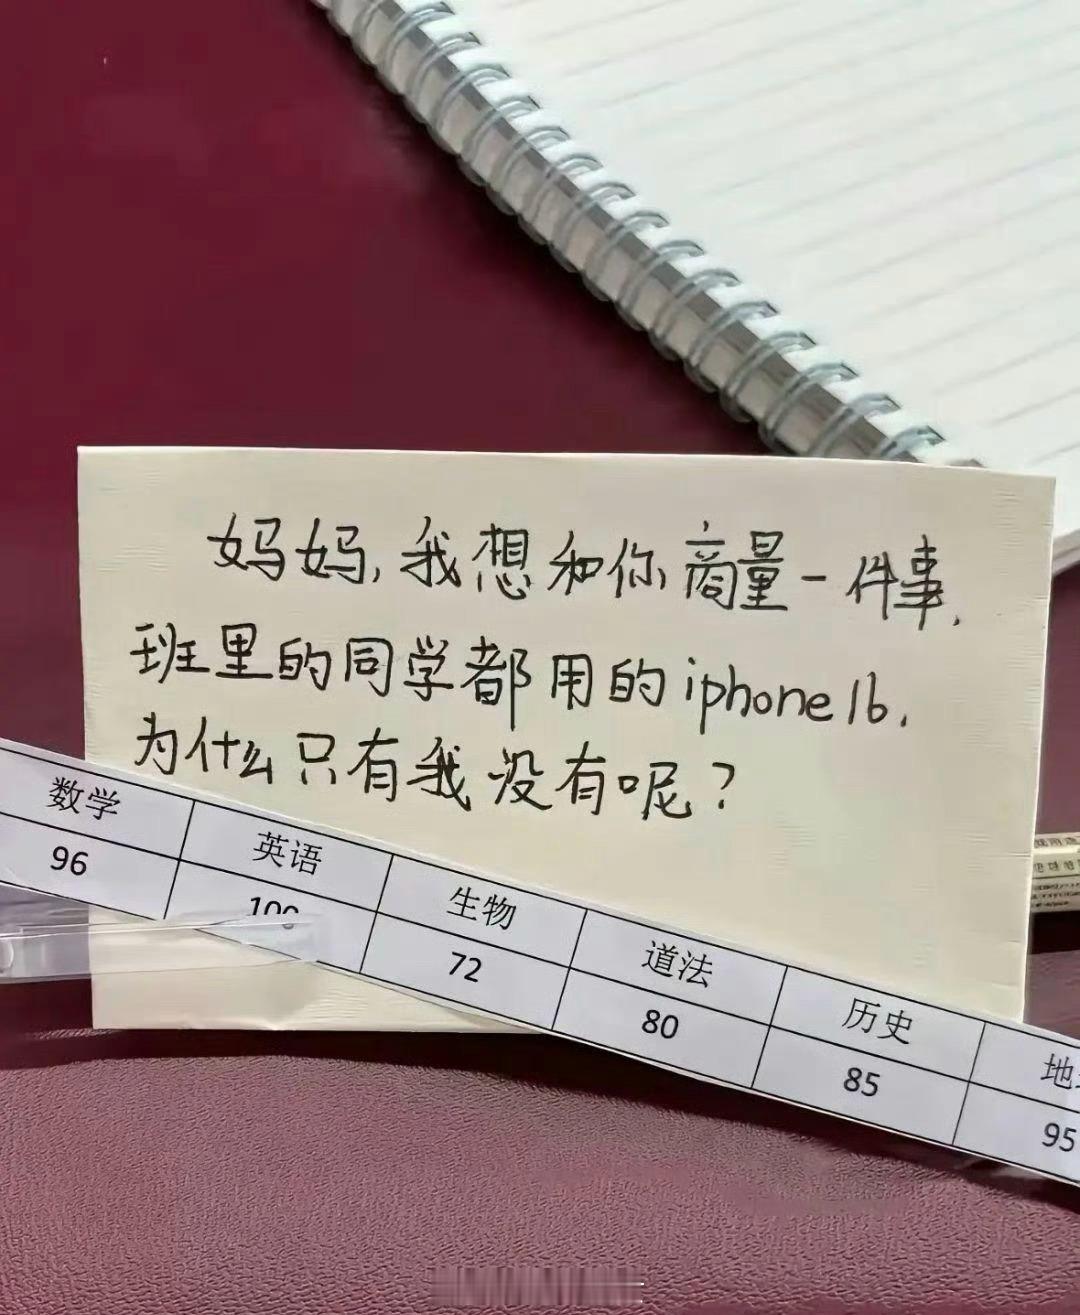 妈妈,我想和你商量一件事.
班里的同学都用的iphone16.
为什么只有我没有呢?
数学 英语 生物 道法 历史
96 100 72 80 85 95